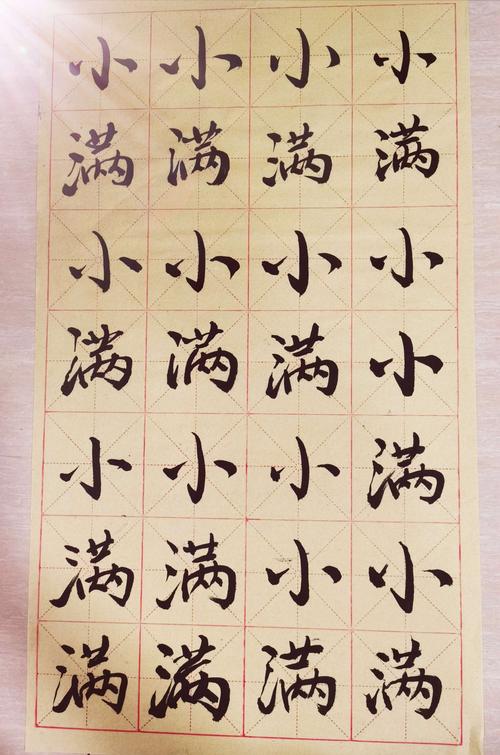 小满小小满小满
小满小满小小满
小满小满小满满
小满小满小满满